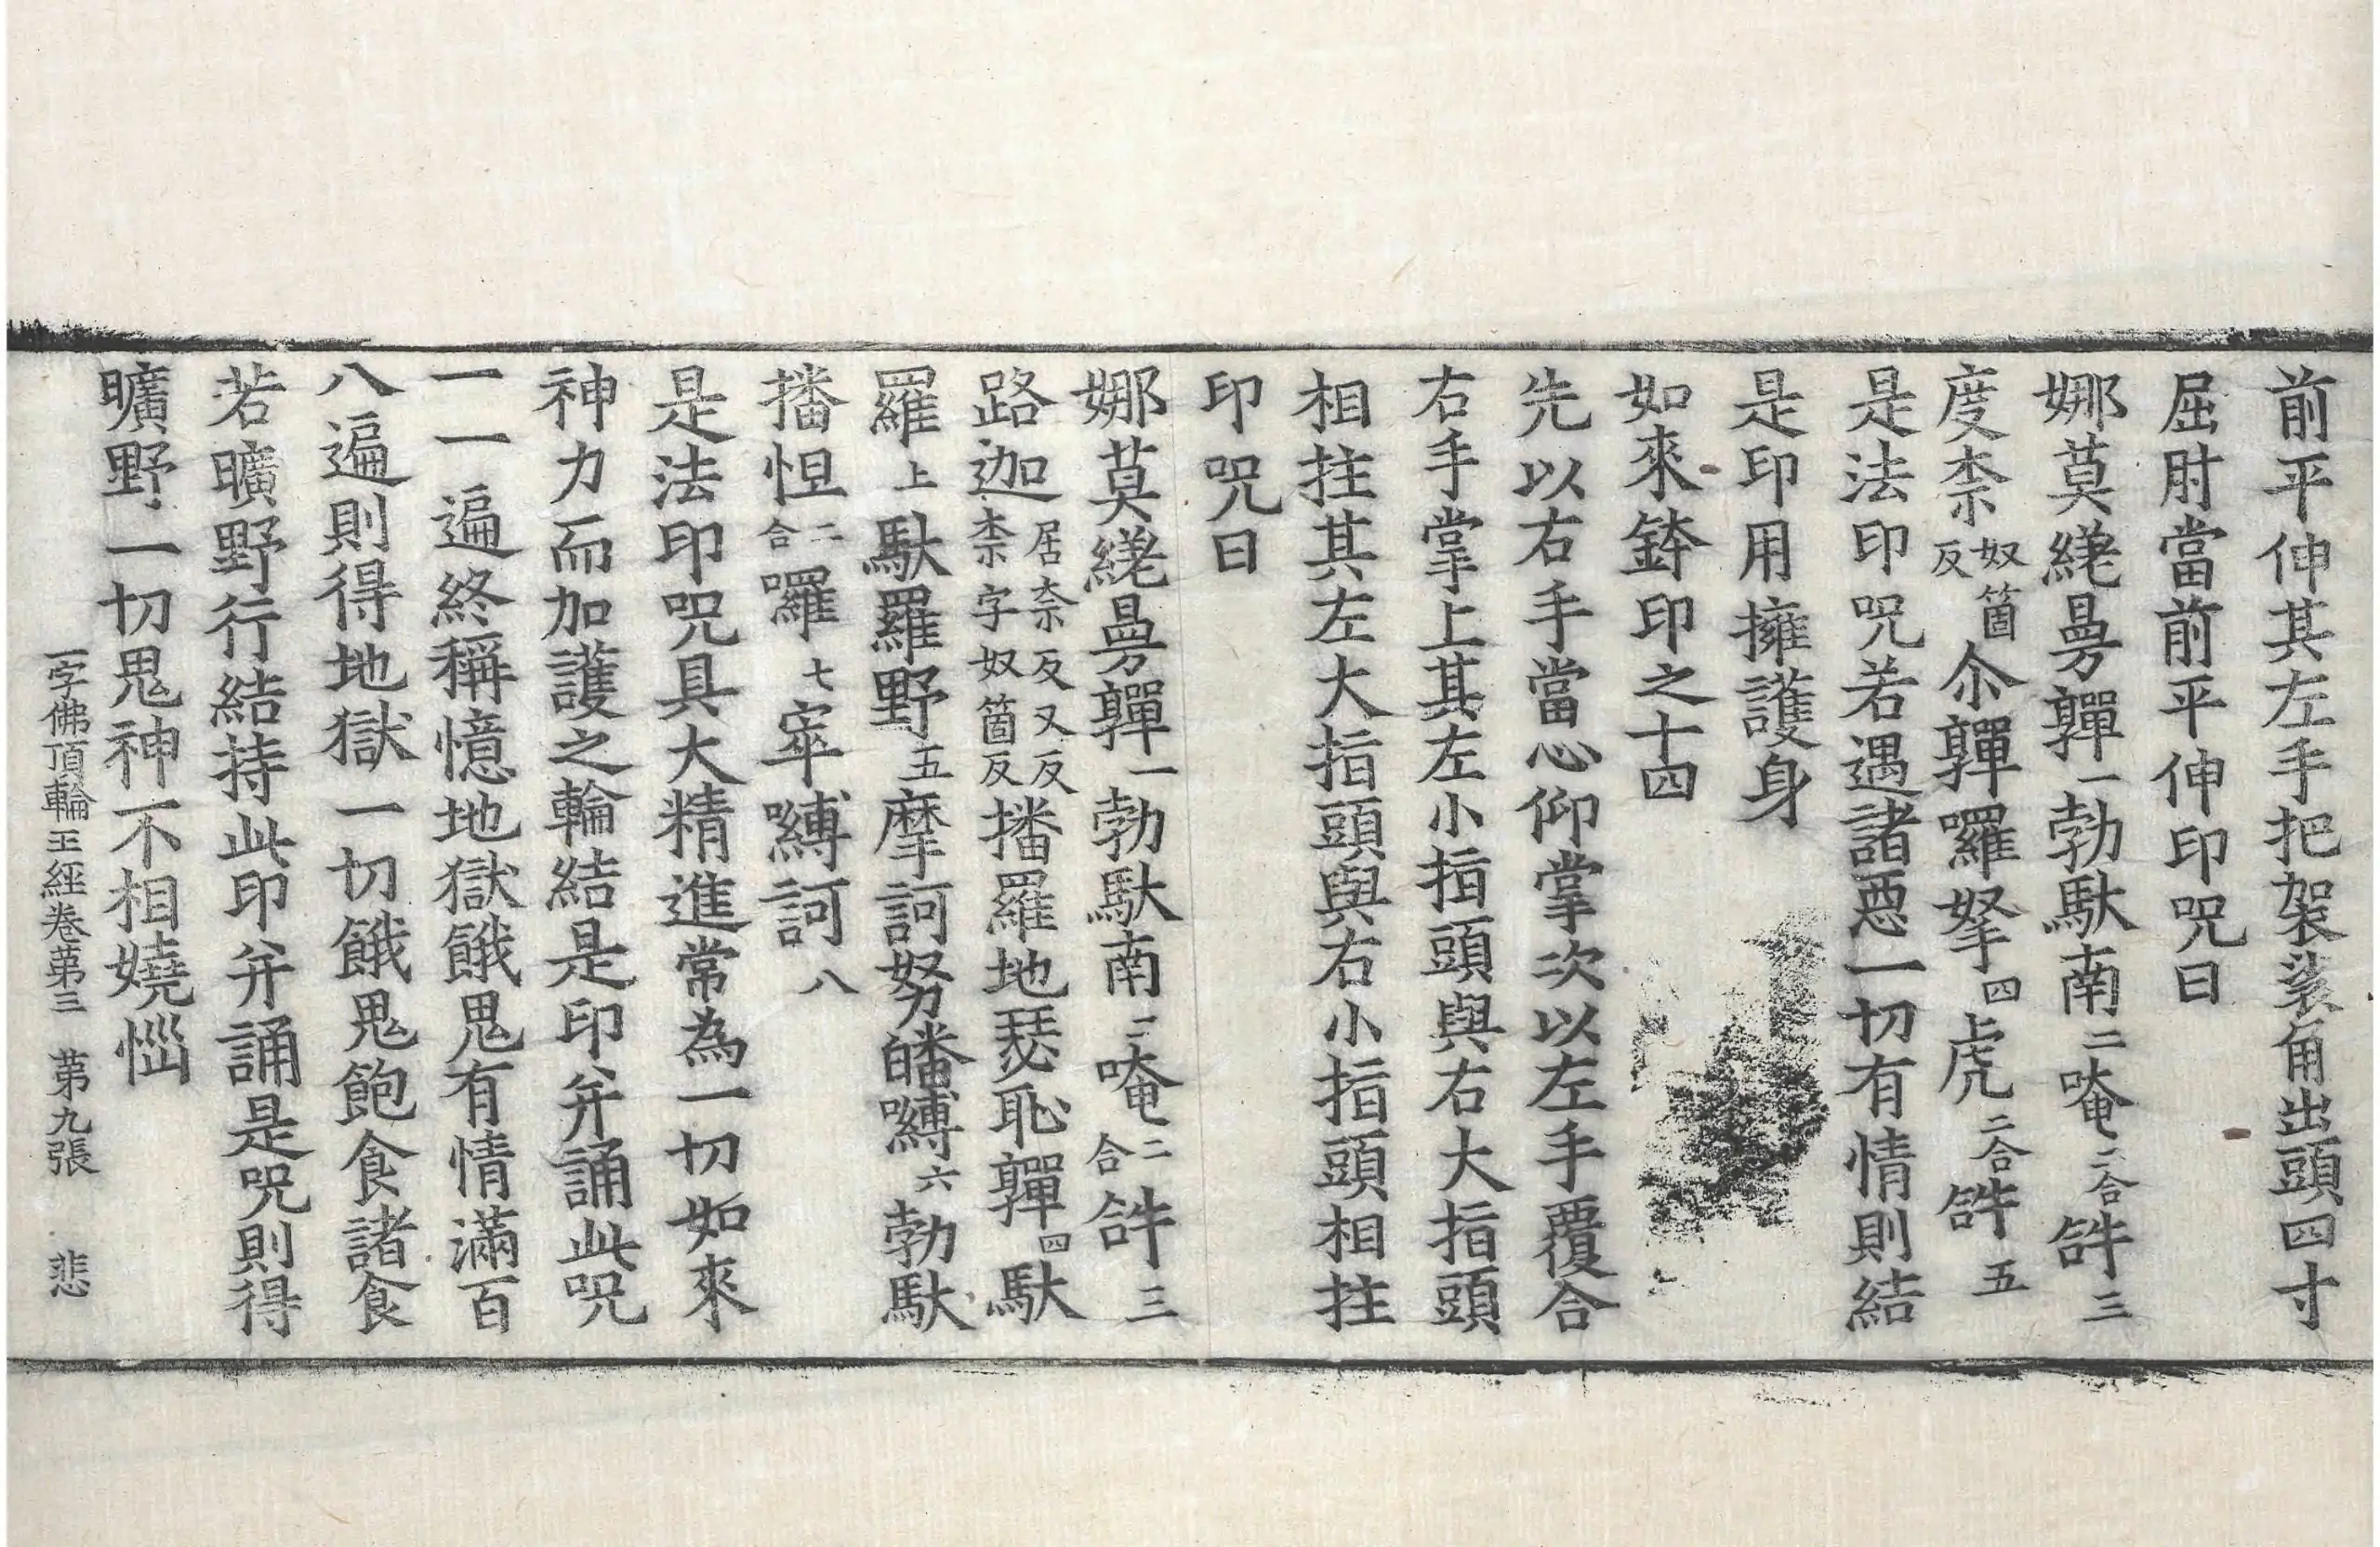 前平伸其左手把袈裟角出頭四寸
屈肘當前平伸印呪曰
娜莫縒曼嚲一勃馱南二唵二合𤙖三
度柰奴箇反尒嚲囉拏四虎二合𤙖五
是法印呪若遇諸惡一切有情則結
是印用擁護身
如來鉢印之十四
先以右手當心仰掌次以左手覆合
右手掌上其左小指頭與右大指頭
相拄其左大指頭與右小指頭相拄
印呪曰
娜莫縒曼嚲一勃馱南二唵二合𤙖三
路迦居柰反又柰字奴箇反播羅地瑟恥嚲四馱
羅上馱羅野五摩訶努皤嚩六勃馱
播怛二合囉七窣嚩訶八
是法印呪具大精進常為一切如來
神力而加護之輪結是印弁誦此呪
一一遍終稱憶地獄餓鬼有情滿百
八遍則得地獄一切餓鬼飽食諸食
若曠野行結持此印弁誦是呪則得
曠野一切鬼神不相嬈惱
一字佛頂輪王經卷苐三 苐九張 悲